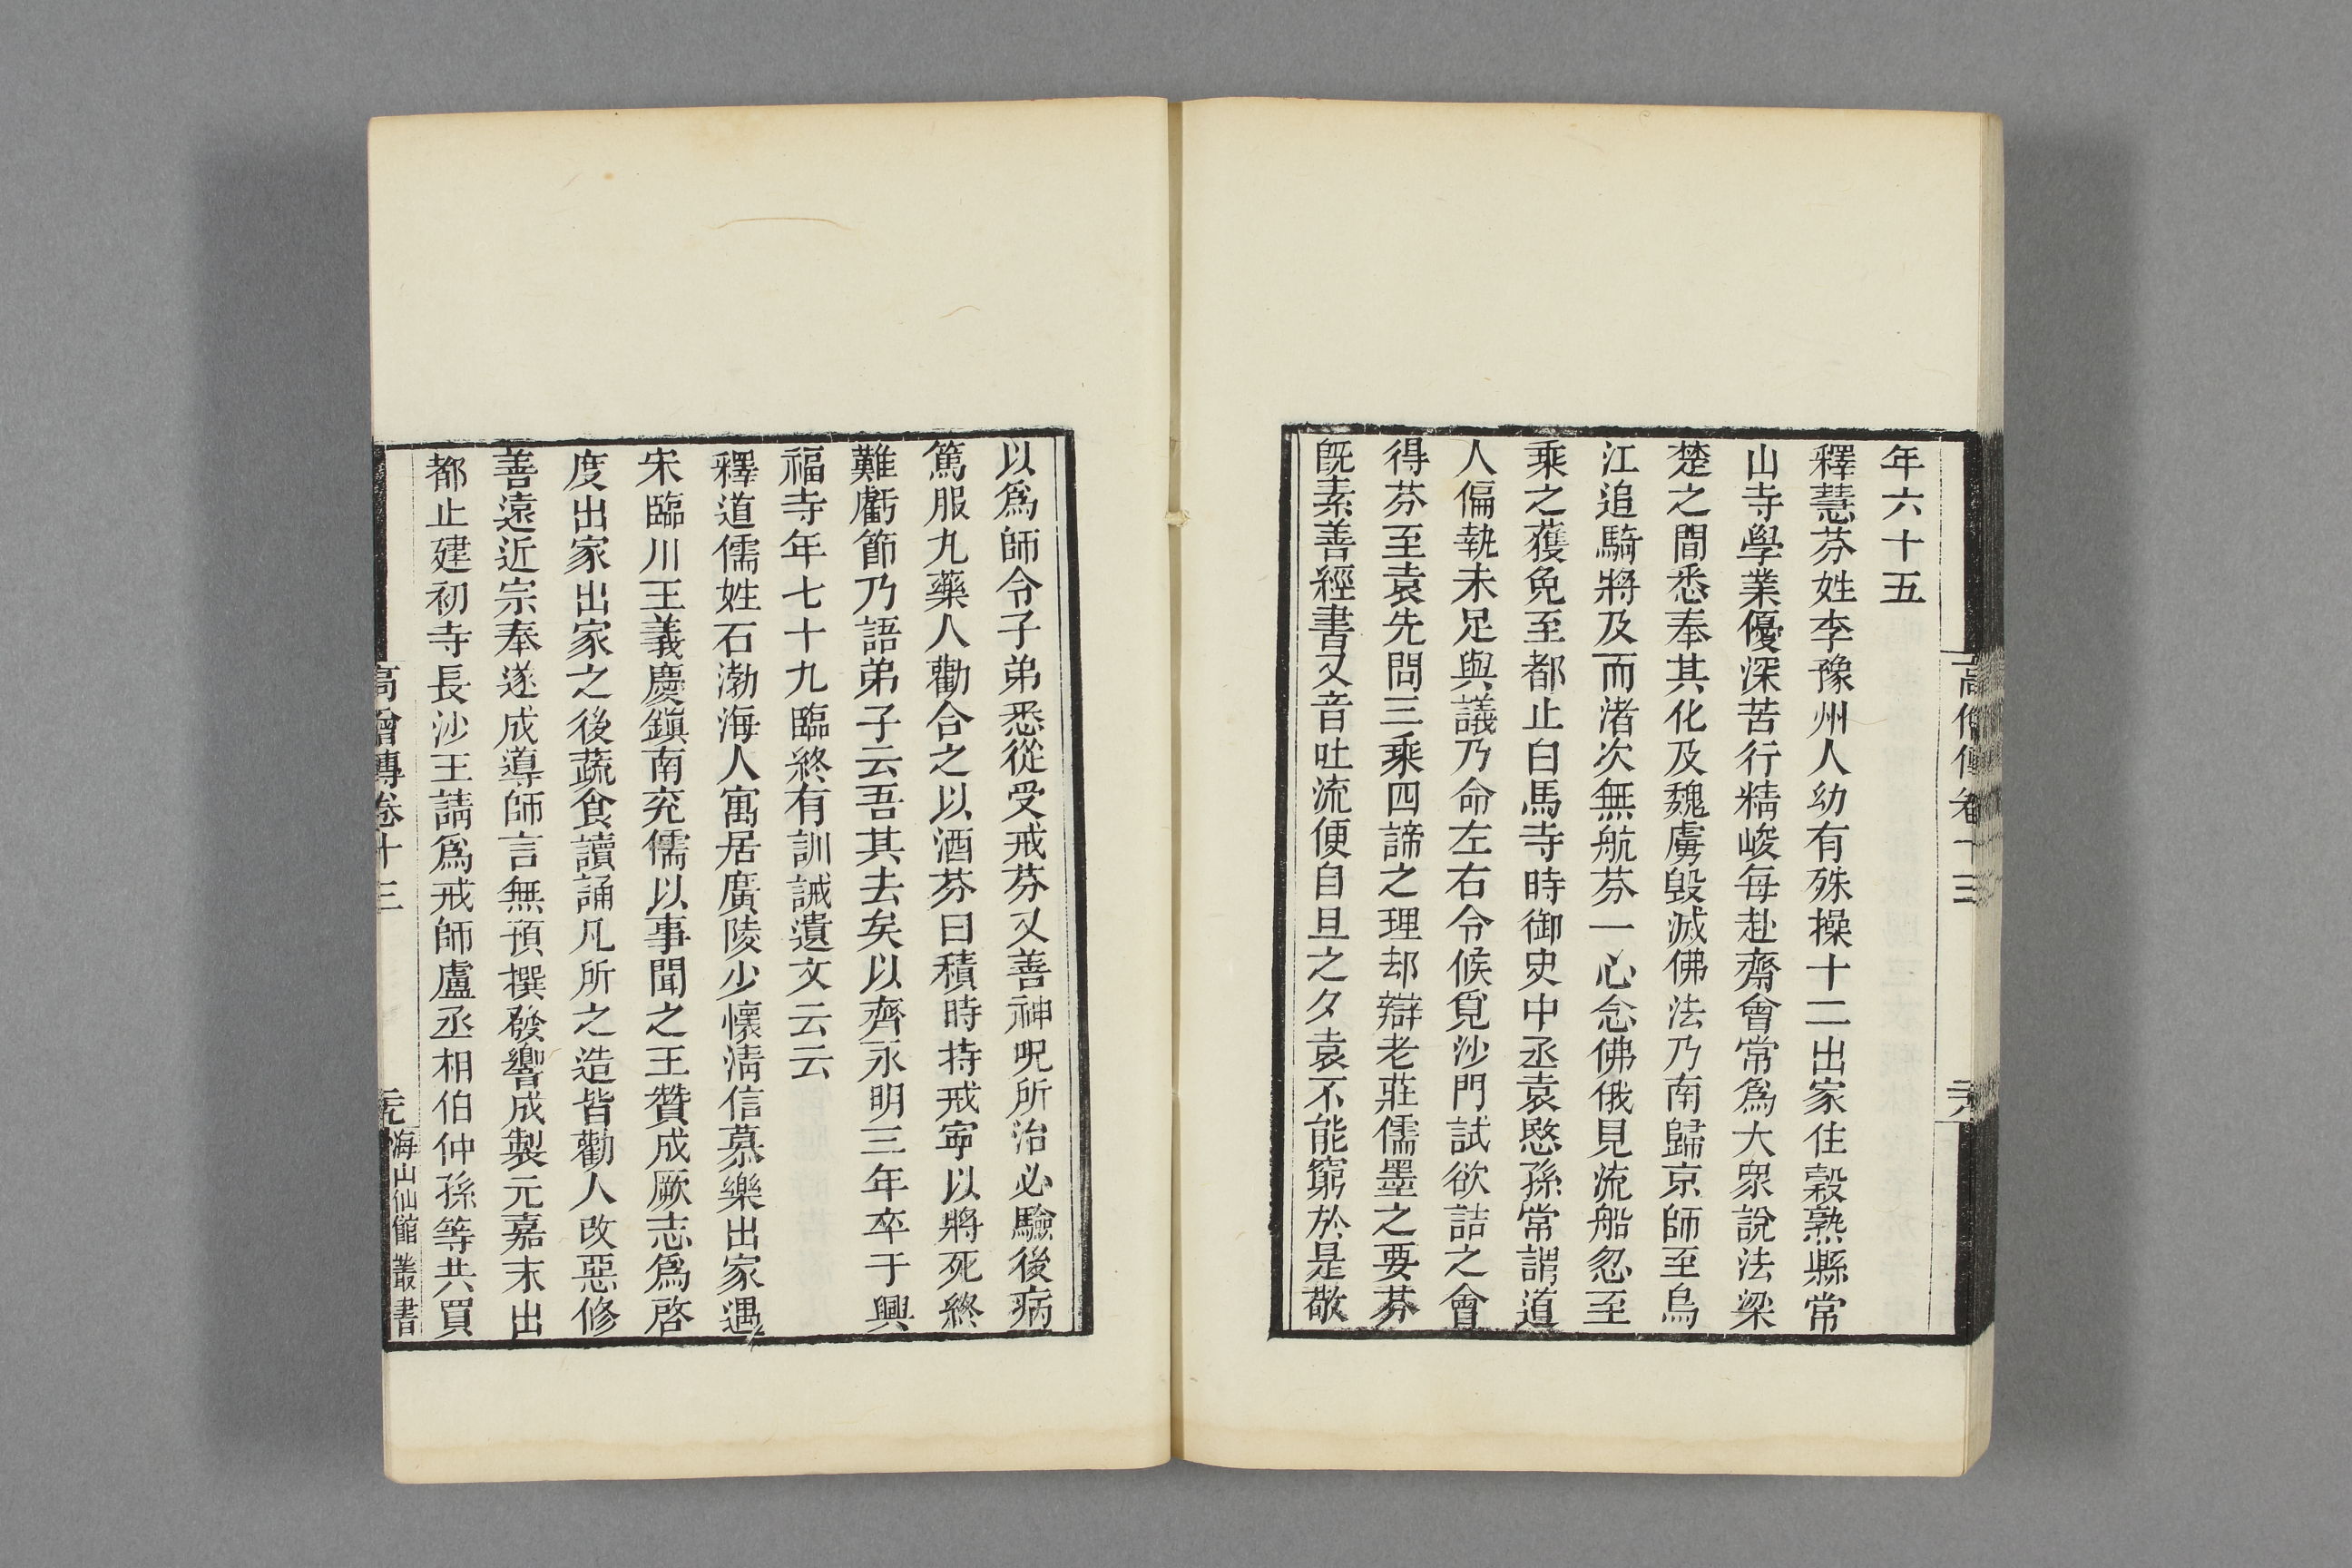 高僧傳卷十三
年六十五
釋慧芬姓李豫州人幼有殊操十二出家住穀熟縣常
山寺學業優深苦行精峻每赴齋會常爲大眾說法梁
楚之間悉奉其化及魏虜毀滅佛法乃南歸京師至烏
江追騎將及而渚次無航芬一心念佛俄見流船忽至
乘之獲免至都止白馬寺時御史中丞袁愍孫常謂道
人偏執未足與議乃命左右令候覓沙門試欲詰之會
得芬至袁先問三乘四諦之理却辯老莊儒墨之要芬
旣素善經書又音吐流便自旦之夕袁不能窮於是敬
以爲師令子弟悉從受戒芬又善神呪所治必驗後病
篤服丸藥人勸合之以酒芬曰積時持戒寧以將死終
難虧節乃語弟子云吾其去矣以齊永明三年卒于興
福寺年七十九臨終有訓誡遺文云云
釋道儒姓石渤海人寓居廣陵少懷淸信慕樂出家遇
宋臨川王義慶鎭南兖儒以事聞之王贊成厥志爲啓
度出家出家之後蔬食讀誦凡所之造皆勸人改惡修
善遠近宗奉遂成導師言無預撰發響成製元嘉末出
都止建初寺長沙王請爲戒師盧丞相伯仲孫等共買
高僧傳卷十三
海山仙館叢書